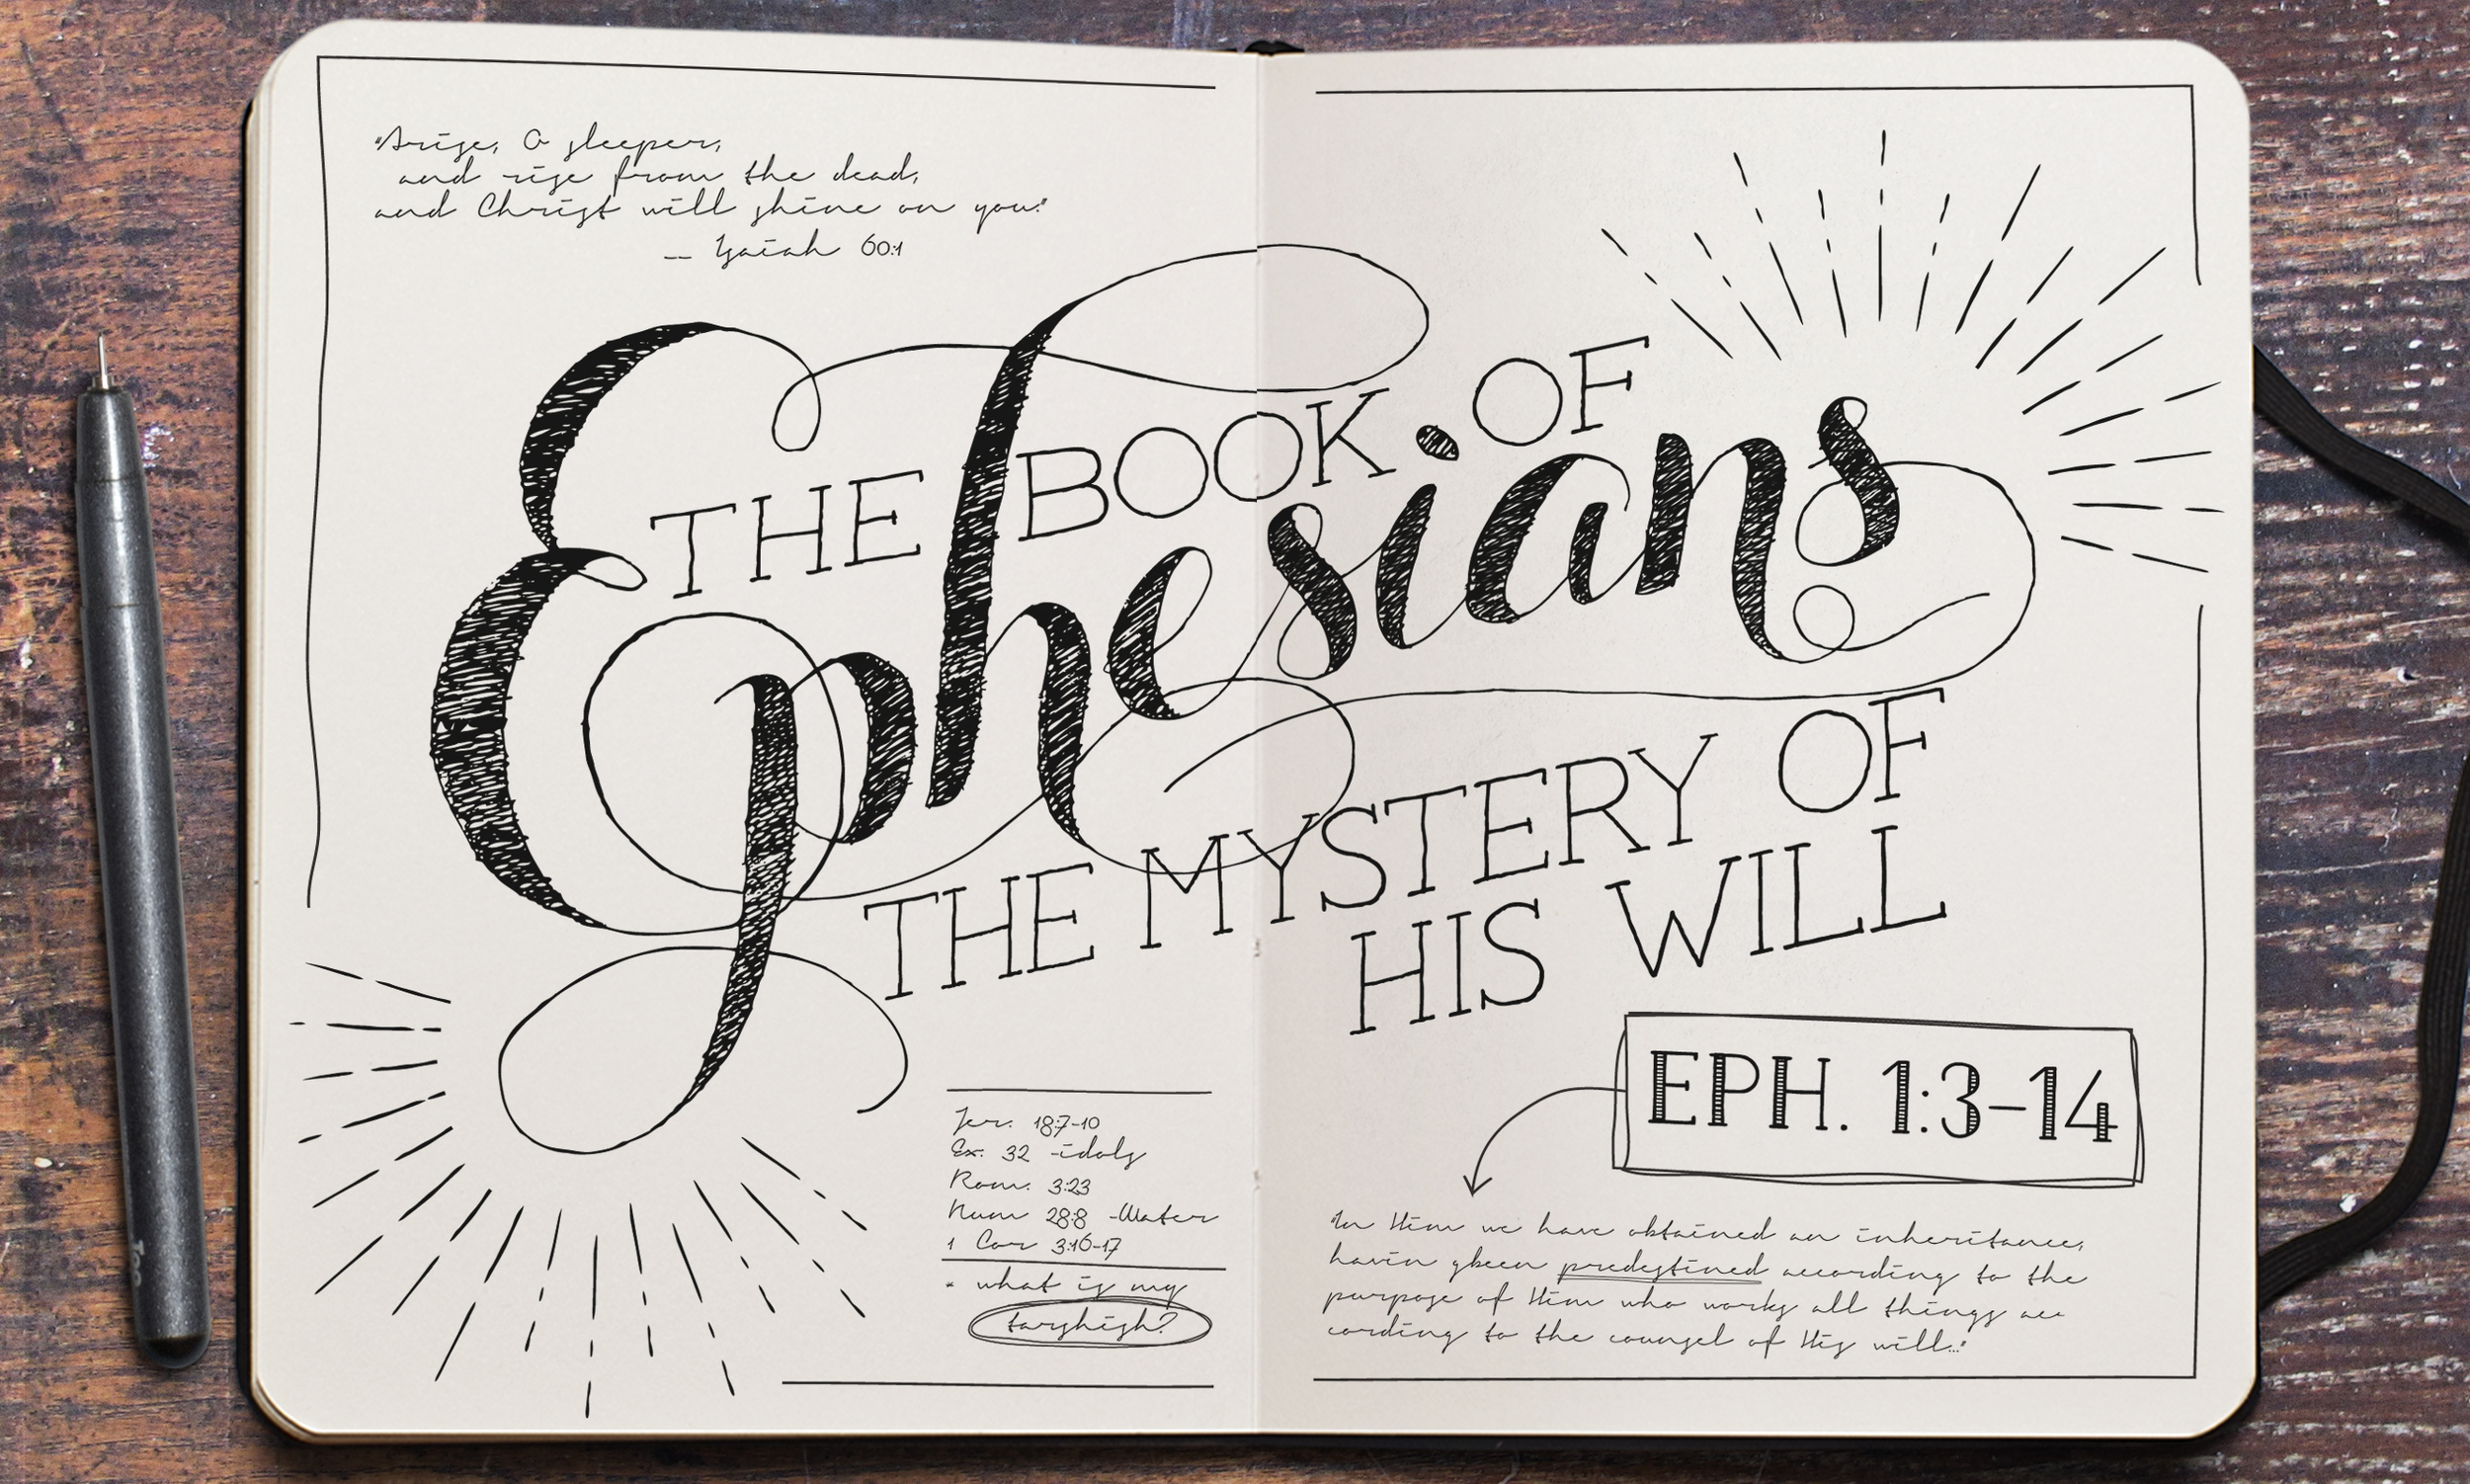 "Arise, O sleeper,
and rise from the dead,
and Christ will shine on you."
-- Isaiah 60:1
THE BOOK OF
Ephesians
THE MYSTERY OF
HIS WILL
EPH. 1:3-14
Jer. 18:7-10
Ex. 32 -idols
Rom. 3:23
Num 28:8 -Water
1 Cor 3:16-17
* what is my
tarshish?
"In Him we have obtained an inheritance,
havin gbeen predestined according to the
purpose of Him who works all things acc
cording to the counsel of His will..."